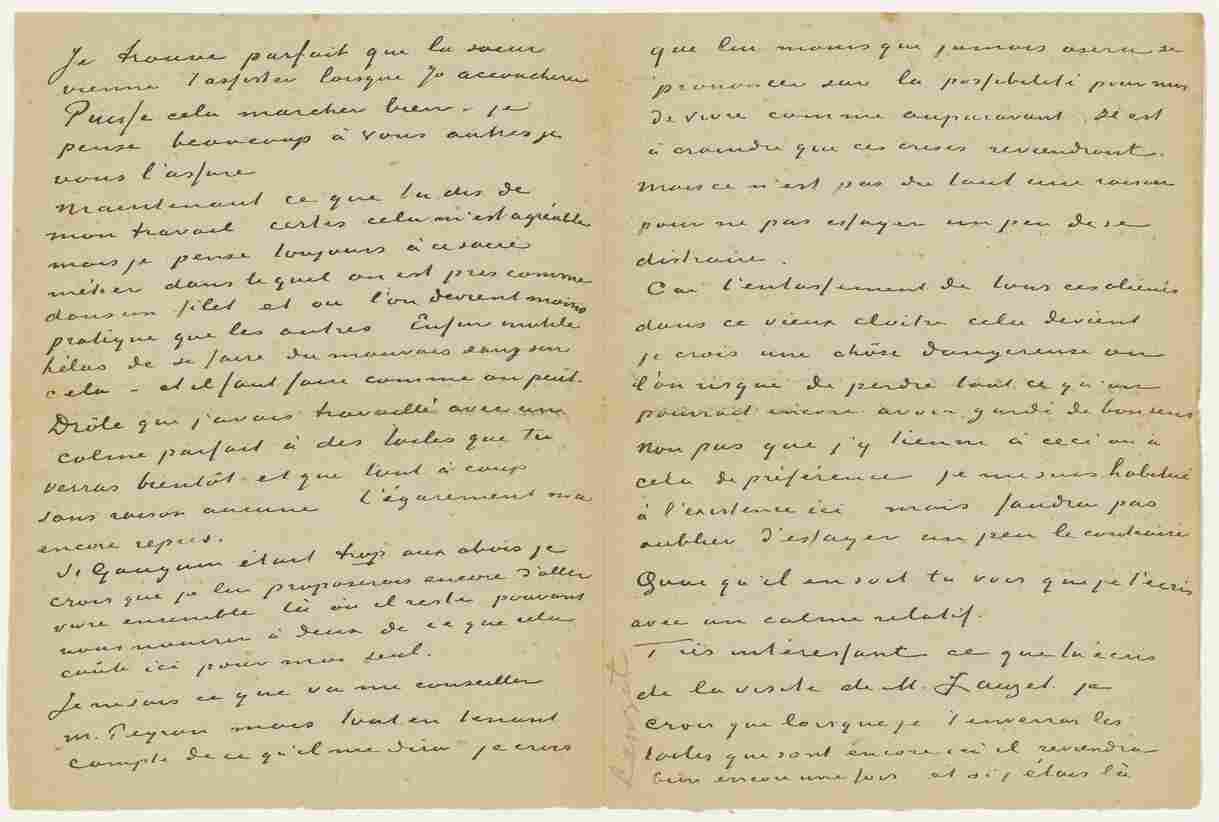 Je trouve parfait que la soeur
vienne t'assister lorsque Jo accouchera
Puisse cela marcher bien – je
pense beaucoup à vous autres je
vous l'assure
Maintenant ce que tu dis de
mon travail certes cela m'est agréable
mais je pense toujours à ce sacré
métier dans lequel on est pris comme
dans un filet et où l'on devient moins
pratique que les autres Enfin inutile
hélas de se faire du mauvais sang sur
cela – et il faut faire comme on peut.
Drôle que j'avais travaillé avec un
calme parfait à des toiles que tu
verras bientôt et que tout à coup
sans raison aucune l'égarement m'a
encore repris.
Si Gauguin étant trop aux abois je
crois que je lui proposerais encore d'aller
vivre ensemble là où il reste pouvant
nous nourrir à deux de ce que cela
coûte ici pour moi seul.
Je ne sais ce que va me conseiller
M. Peyron mais tout en tenant
compte de ce qu'il me dira je crois
que lui moins que jamais osera se
prononcer sur la possibilité pour moi
de vivre comme auparavant. Il est
à craindre que ces crises reviendront.
Mais ce n'est pas du tout une raison
pour ne pas essayer un peu de se
distraire.
Car l'entassement de tous ces aliénés
dans ce vieux cloitre cela devient
je crois une chôse dangereuse où
l'on risque de perdre tout ce qu'on
pourrait encore avoir gardé de bon sens
Non pas que j'y tienne à ceci ou à
cela de préférence je me suis habitué
à l'existence ici mais faudra pas
oublier d'essayer un peu le contraire
Quoi qu'il en soit tu vois que je t'écris
avec un calme relatif.
Très intéressant ce que tu écris
de la visite de M. Lauzet. je
crois que lorsque je t'enverrai les
toiles qui sont encore ici il reviendra
bien encore une fois et si j'étais là